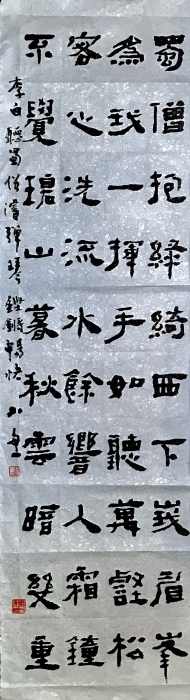 蜀僧抱綠綺西下峩眉峯
為我一揮手如聽萬壑松
客心洗流水餘響入霜鐘
不覺碧山暮秋雲暗幾重
李白聽蜀僧濬彈琴鏗鏘暢快